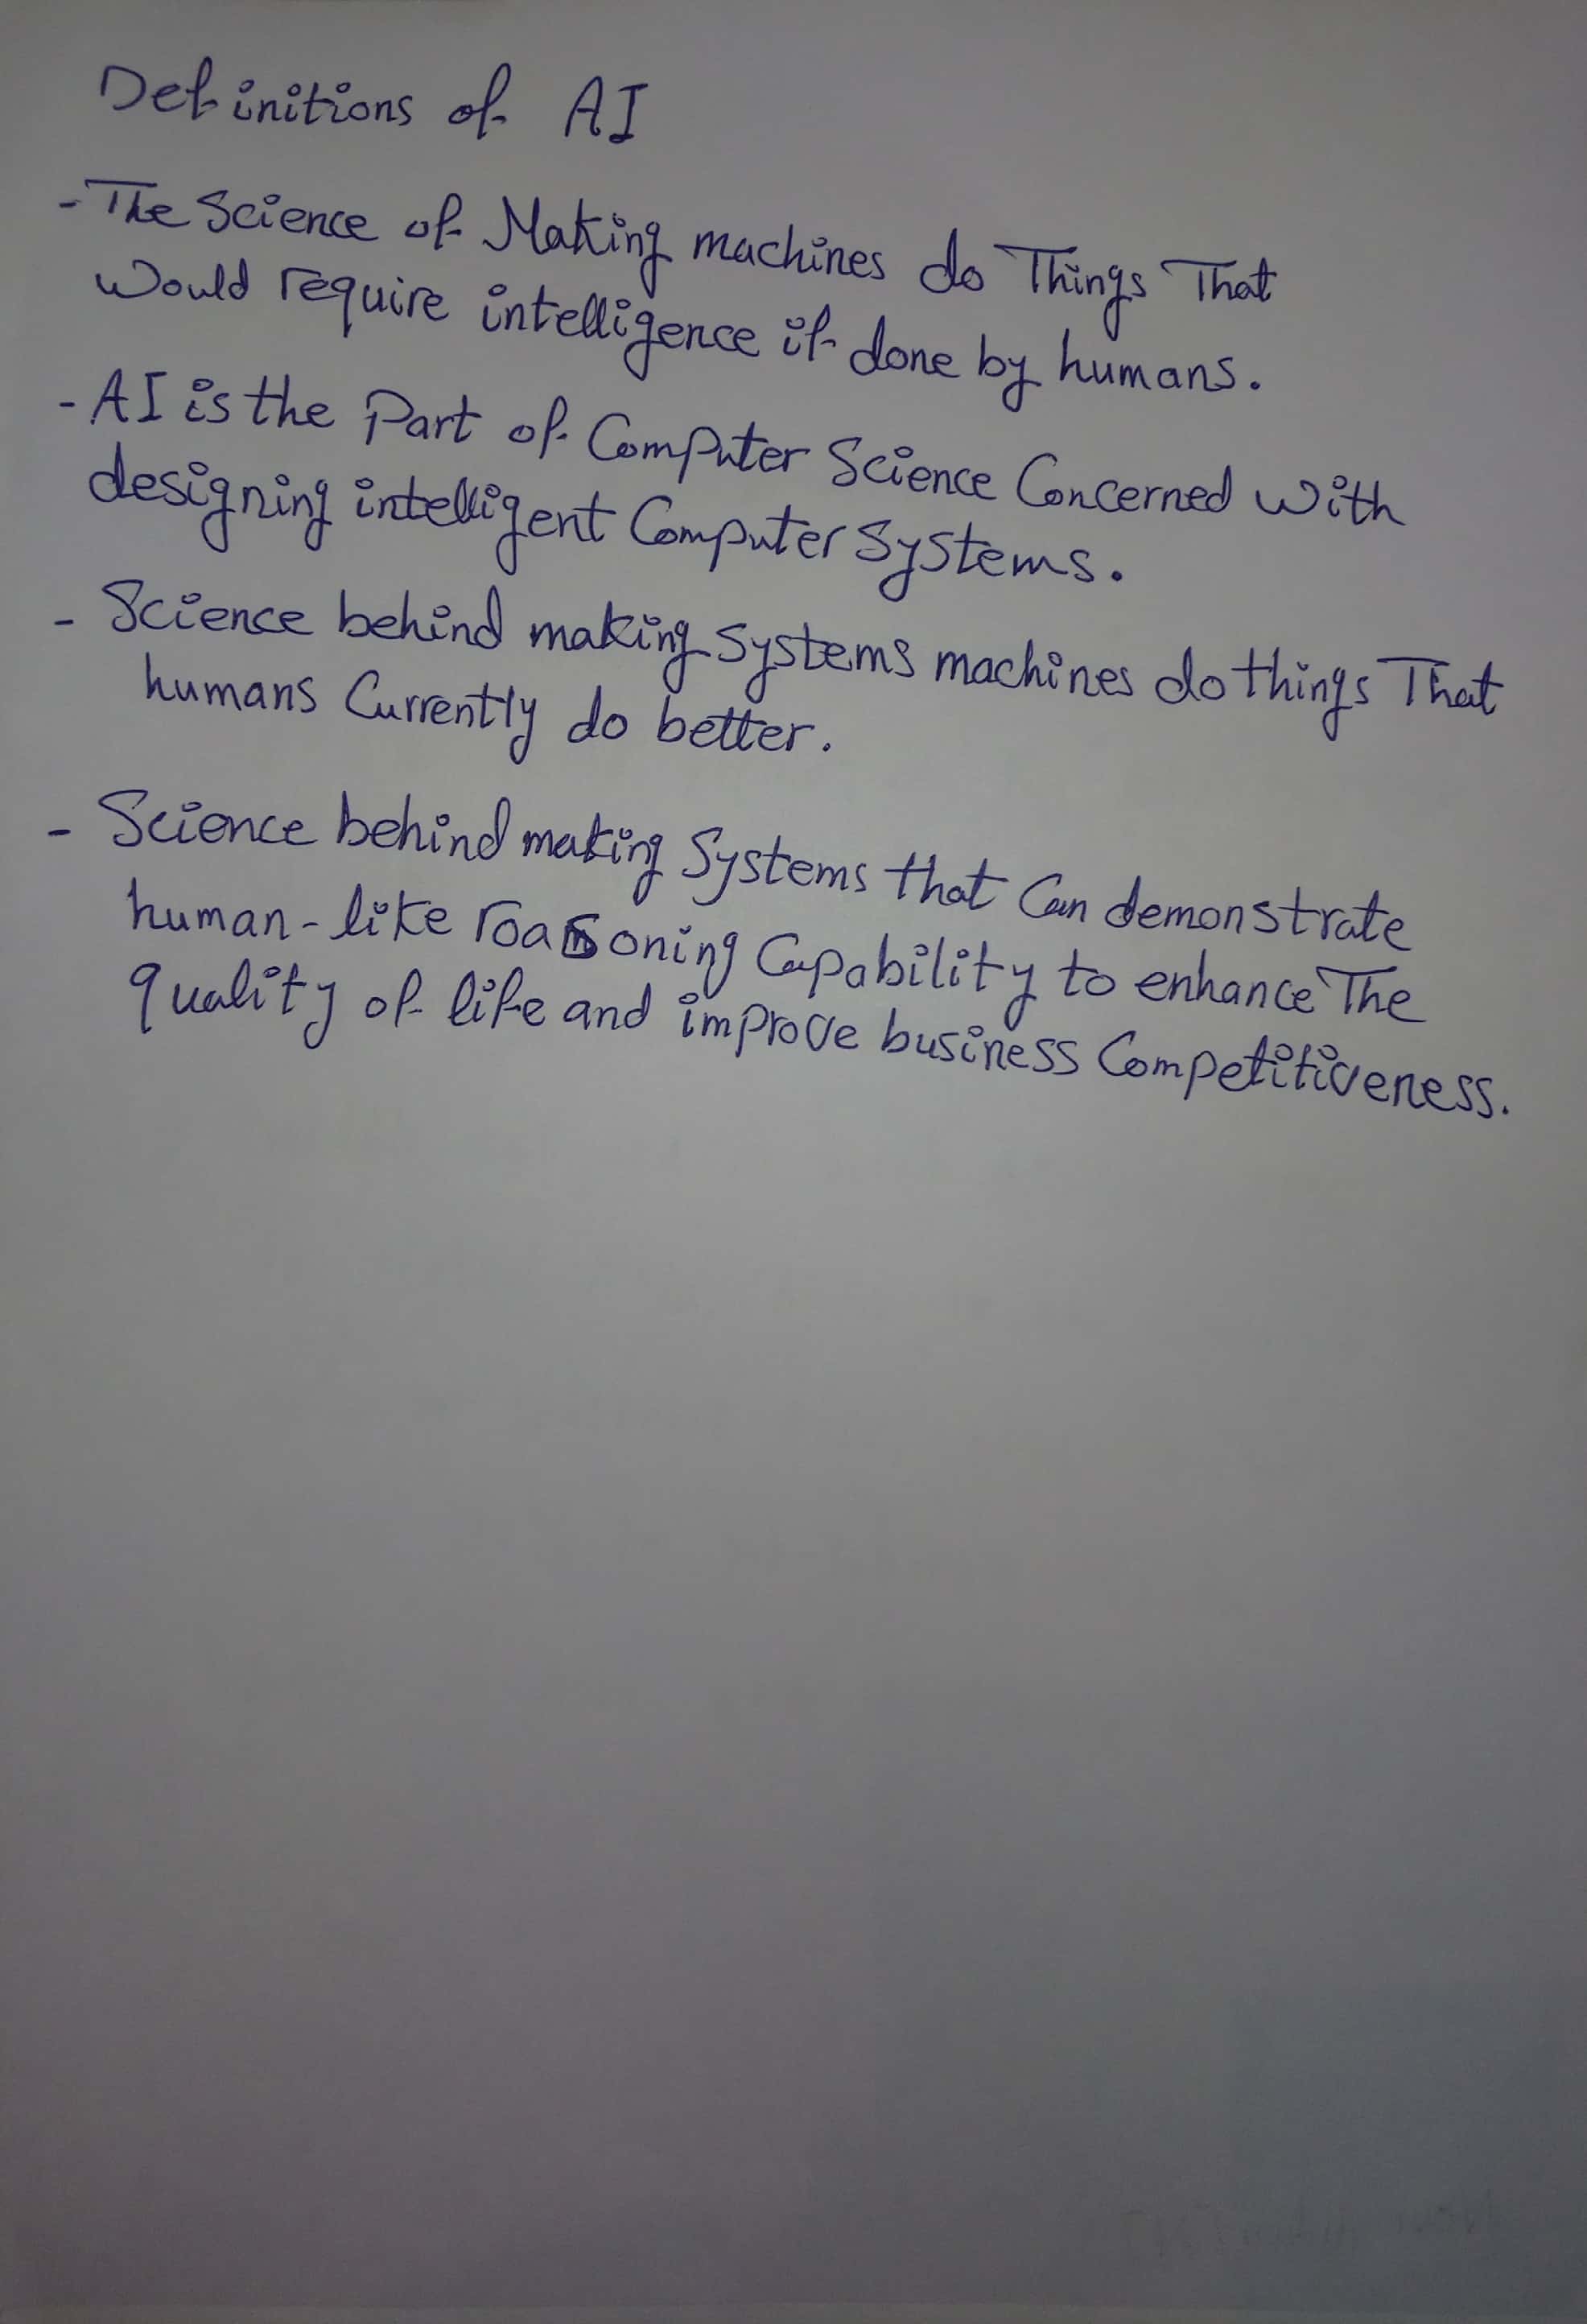 Definitions of AI
- The Science of Making machines do Things That
would require intelligence if done by humans.
- AI is the Part of Computer Science Concerned with
designing intelligent Computer Systems.
- Science behind making systems machines do things That
humans Currently do better.
- Science behind making Systems that Can demonstrate
human-like roasoning Capability to enhance The
quality of life and improve business Competitiveness.